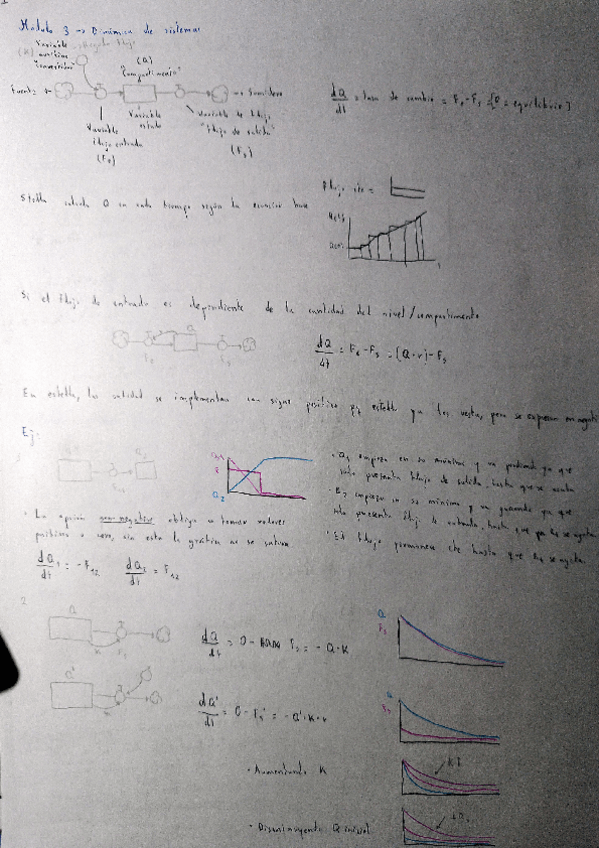 Modulo 3 -> Dinámica de sistemas
Variable
(K) auxiliar
"conversión"
(Q)
"Compartimento"
Fuente
Sumidero
Variable
flujo entrada
(Fe)
Variable
estado
Variable de flujo
"flujo de salida"
(Fs)
dQ/dt = tasa de cambio = Fe - Fs = [0 = equilibrio]
Stella calcula Q en cada tiempo según la ecuación
Flujo cte =
Si el flujo de entrada es dependiente de la cantidad del nivel/compartimento
dQ/dt = Fe - Fs = (Q·r) - Fs
En estella, las salidas se implementan con signo positivo pq estella ya las resta, pero se expresan en negati
Ej:
· Q1 empieza en su máximo y va perdiendo ya que
solo presenta flujo de salida, hasta que se acaba
· Q2 empieza en su mínimo y va ganando ya que
solo presenta flujo de entrada, hasta que Q1 se agota
· El flujo permanece cte hasta que Q1 se agota.
· La opción non-negative obliga a tomar valores
positivos o cero, sin esta la gráfica no se satura
dQ1/dt = -F12
dQ2/dt = F12
2
Q
K
dQ/dt = 0 - Fs = -Q·K
Q
Q'
dQ'/dt = 0 - Fs' = -Q'·K·r
· Aumentando K
K↑
· Disminuyendo Q inicial